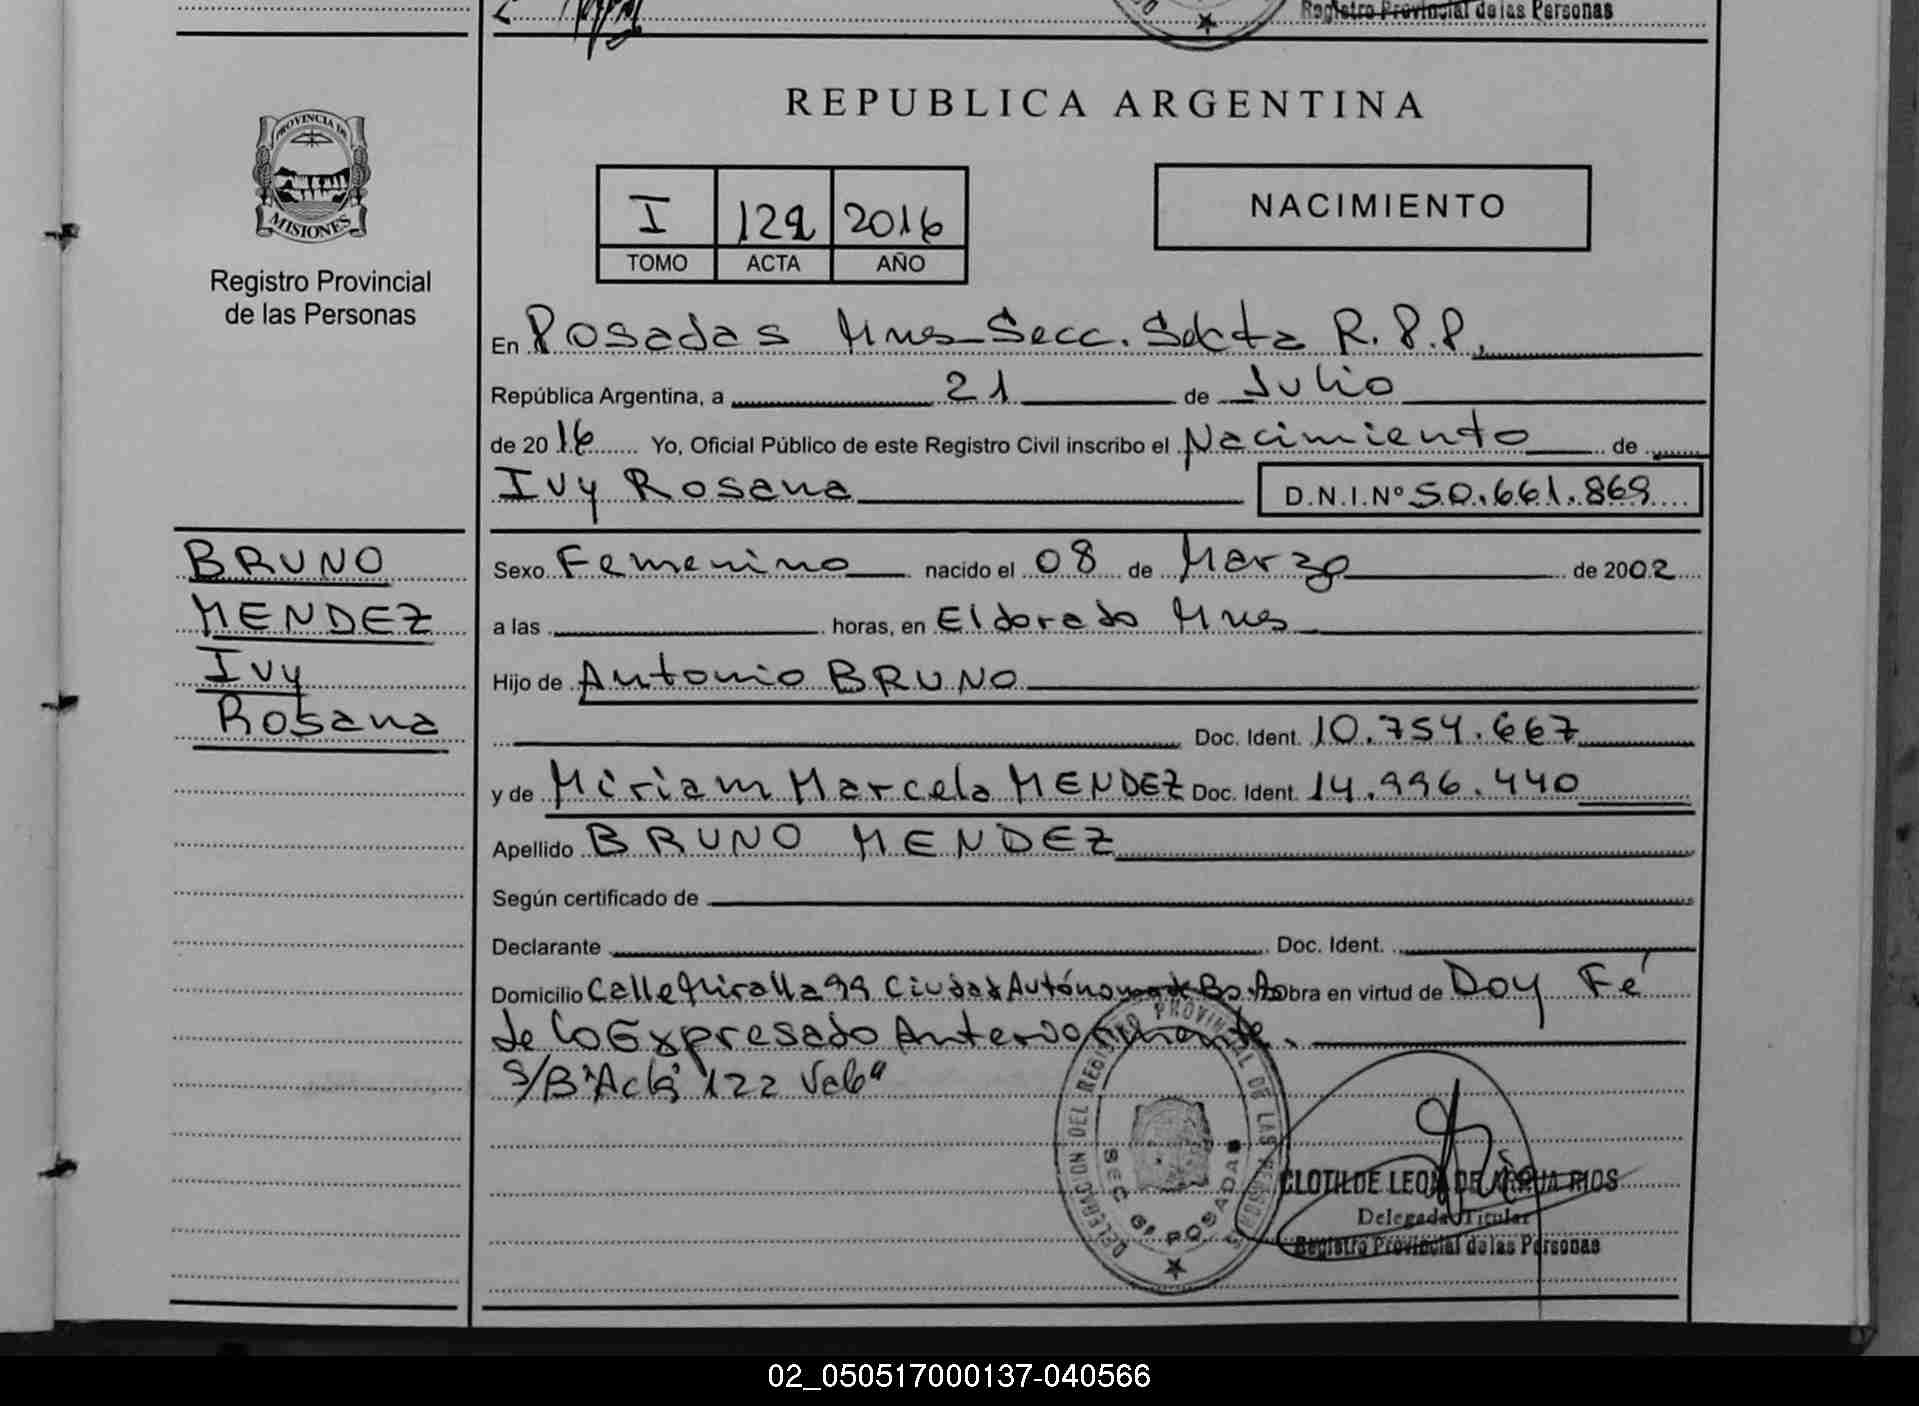 Registro Provincial de las Personas
PROVINCIA DE
MISIONES
Registro Provincial
de las Personas
REPUBLICA ARGENTINA
I 129 2016
TOMO ACTA AÑO
NACIMIENTO
En Posadas Mnes Secc. Sexta R.P.P.
República Argentina, a 21 de Julio
de 2016 Yo, Oficial Público de este Registro Civil inscribo el Nacimiento de
Ivy Rosana D.N.I.Nº 50.661.869
BRUNO
MENDEZ
Ivy
Rosana
Sexo Femenino nacido el 08 de Marzo de 2002
a las horas, en Eldorado Mnes
Hijo de Antonio BRUNO
Doc. Ident. 10.754.667
y de Miriam Marcela MENDEZ Doc. Ident. 14.996.440
Apellido BRUNO MENDEZ
Según certificado de
Declarante Doc. Ident.
Domicilio Calle Miralla 99 Ciudad Autónoma de Bs. As Obra en virtud de Doy Fé
de lo Expresado Anteriormente.
S/B "Acta" 122 Vale"
DELEGACION DEL REGISTRO PROVINCIAL DE LAS PERSONAS
SEC 6ª POSADAS
CLOTILDE LEON DE RIOS
Delegada Titular
Registro Provincial de las Personas
02_050517000137-040566